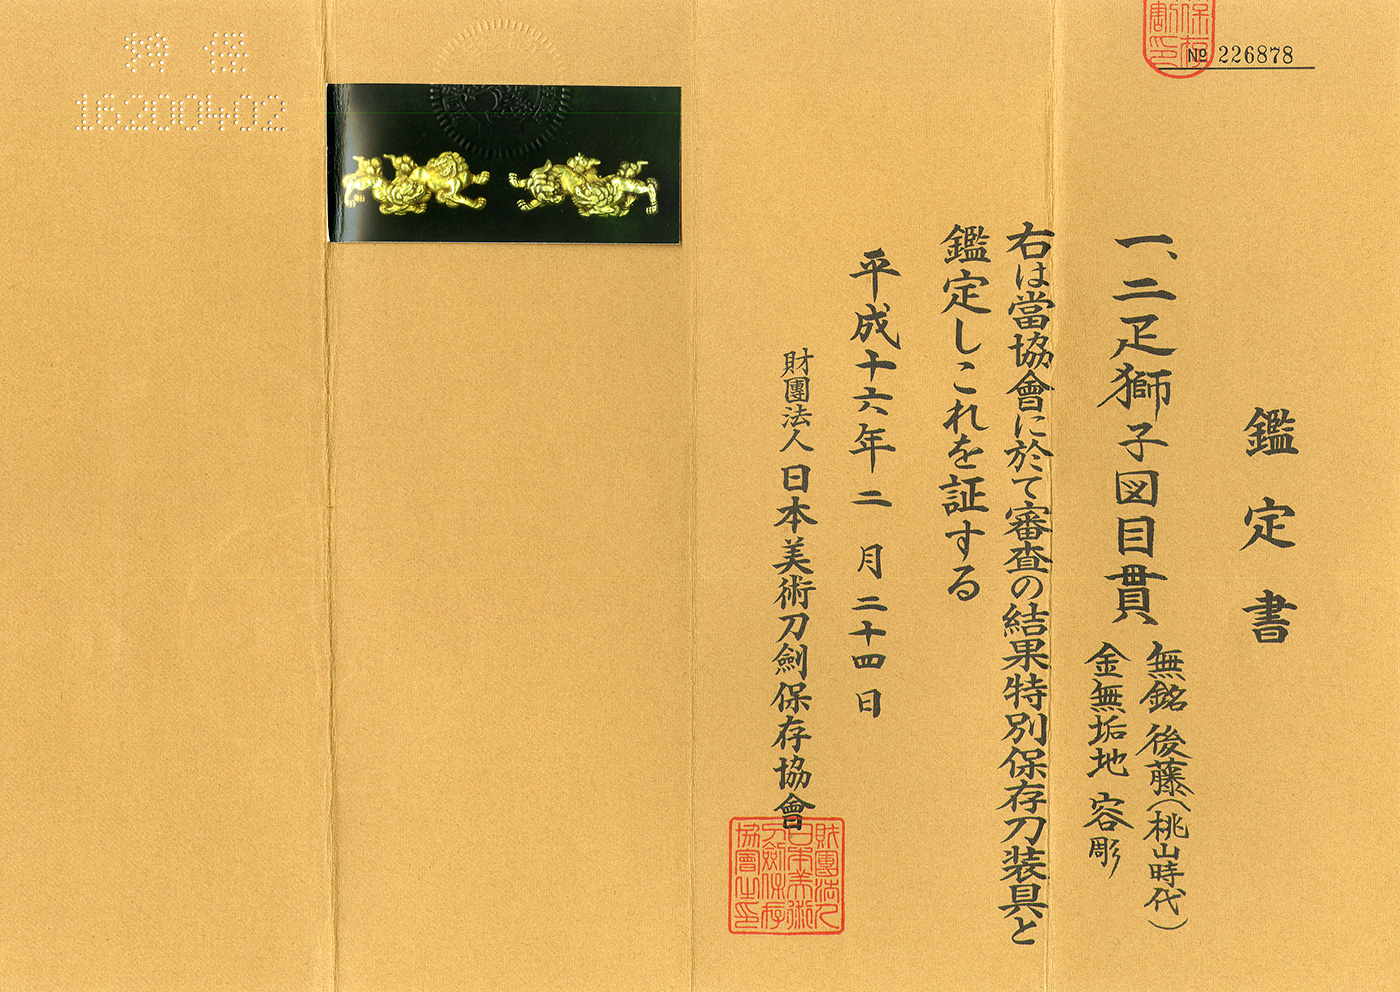 保存
割印
№ 226878
鑑定書
一、二疋獅子図目貫
無銘 後藤(桃山時代)
金無垢地 容彫
右は當協會に於て審査の結果特別保存刀装具と
鑑定しこれを証する
平成十六年二月二十四日
財團法人 日本美術刀劍保存協會
財團法人
日本美術
刀劍保存
協會之印
16200402